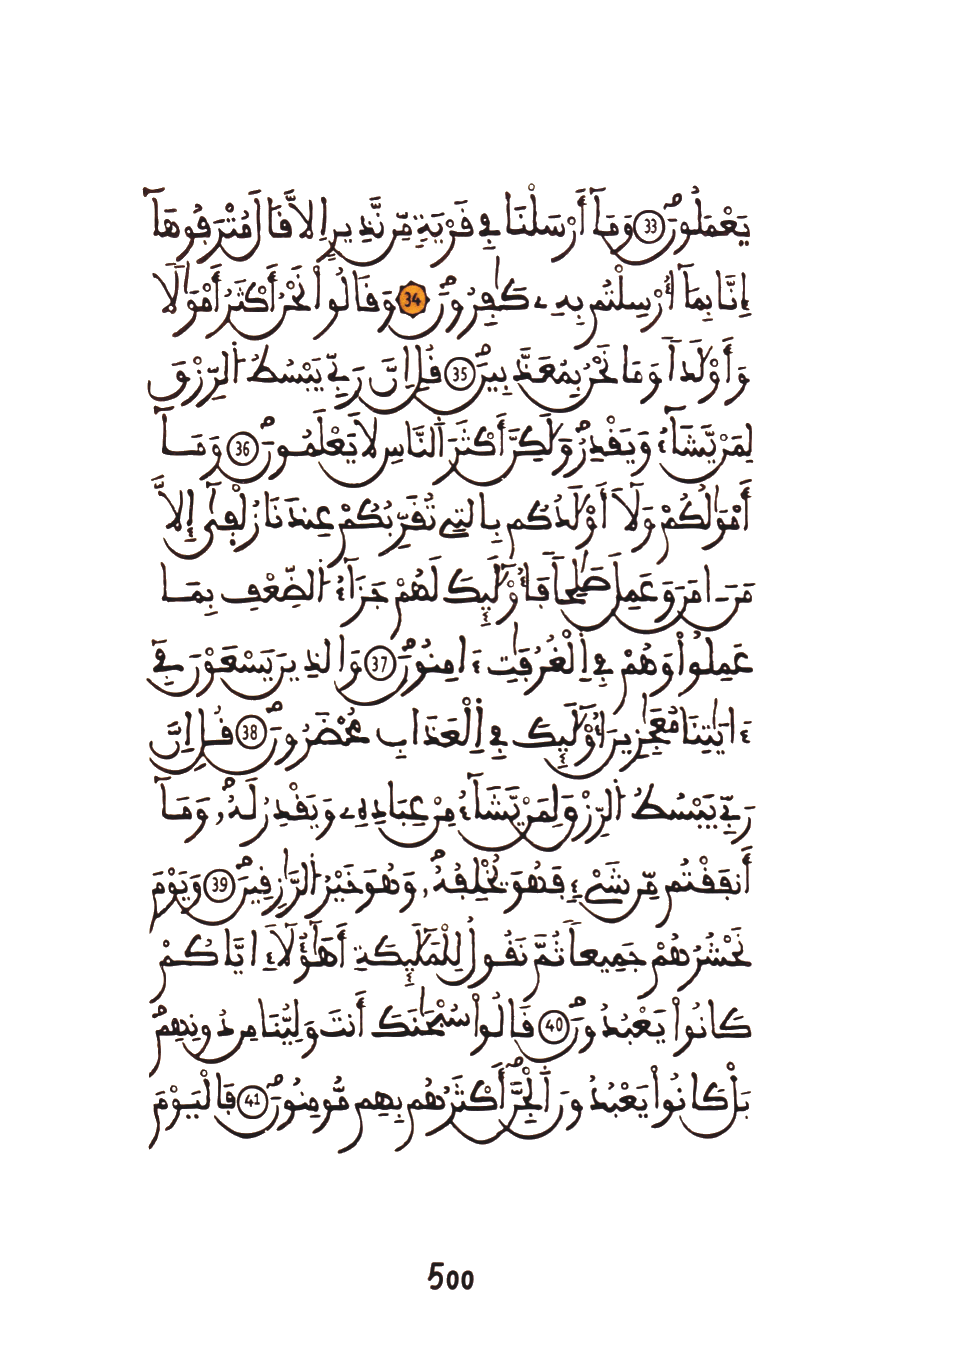 يَعْمَلُونَ 33 وَمَآ أَرْسَلْنَا فِي قَرْيَةٍ مِّن نَّذِيرٍ اِلَّا قَالَ مُتْرَفُوهَآ
إِنَّا بِمَآ أُرْسِلْتُم بِهِۦ كَٰفِرُونَ 34 وَقَالُواْ نَحْنُ أَكْثَرُ أَمْوَٰلًا
وَأَوْلَٰدًا وَمَا نَحْنُ بِمُعَذَّبِينَ 35 قُلِ اِنَّ رَبِّي يَبْسُطُ الرِّزْقَ
لِمَنْ يَّشَآءُ وَيَقْدِرُ وَلَٰكِنَّ أَكْثَرَ النَّاسِ لَا يَعْلَمُونَ 36 وَمَآ
أَمْوَٰلُكُمْ وَلَآ أَوْلَٰدُكُم بِالتِي تُقَرِّبُكُمْ عِندَنَا زُلْفِىٰٓ إِلَّا
مَنَ اٰمَنَ وَعَمِلَ صَٰلِحاً فَأُوْلَٰٓئِكَ لَهُمْ جَزَآءُ الضِّعْفِ بِمَا
عَمِلُواْ وَهُمْ فِي الْغُرُفَٰتِ ءَامِنُونَ 37 وَالذِينَ يَسْعَوْنَ فِيٓ
ءَايَٰتِنَا مُعَٰجِزِينَ أُوْلَٰٓئِكَ فِي الْعَذَابِ مُحْضَرُونَ 38 قُلِ اِنَّ
رَبِّي يَبْسُطُ الرِّزْقَ لِمَنْ يَّشَآءُ مِنْ عِبَادِهِۦ وَيَقْدِرُ لَهُۥ وَمَآ
أَنفَقْتُم مِّن شَيْءٍ فَهُوَ يُخْلِفُهُۥ وَهُوَ خَيْرُ الرَّٰزِقِينَ 39 وَيَوْمَ
نَحْشُرُهُمْ جَمِيعاً ثُمَّ نَقُولُ لِلْمَلَٰٓئِكَةِ أَهَٰٓؤُلَآءِ اِيَّاكُمْ
كَانُواْ يَعْبُدُونَ 40 قَالُواْ سُبْحَٰنَكَ أَنتَ وَلِيُّنَا مِن دُونِهِم
بَلْ كَانُواْ يَعْبُدُونَ الْجِنَّ أَكْثَرُهُم بِهِم مُّومِنُونَ 41 فَالْيَوْمَ
500